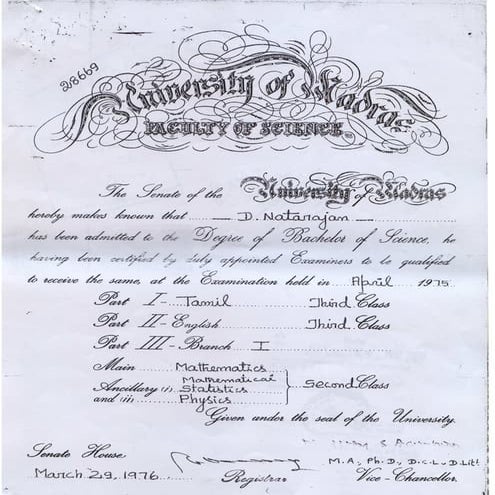 28669
University of Madras
FACULTY OF SCIENCE
The Senate of the University of Madras
hereby makes known that D. Natarajan
has been admitted to the Degree of Bachelor of Science, he
having been certified by duly appointed Examiners to be qualified
to receive the same, at the Examination held in April 1975
Part I - Tamil Third Class
Part II - English Third Class
Part III - Branch I
Main Mathematics
Ancillary (i) Mathematical Statistics
and (ii) Physics Second Class
Given under the seal of the University.
Senate House
M.A., Ph.D., D.C.L., D.Litt.
March 29, 1976 Registrar Vice-Chancellor.